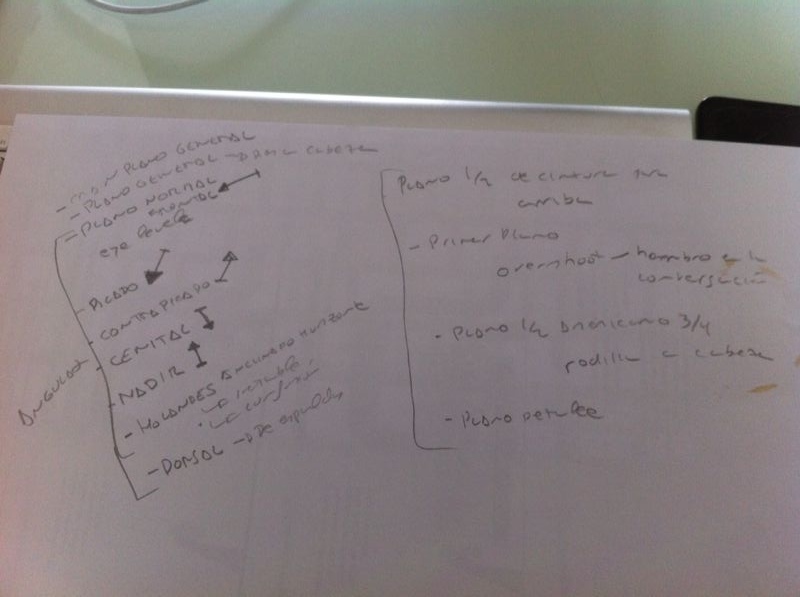 - GRAN PLANO GENERAL
- PLANO GENERAL → PIES A CABEZA
- PLANO NORMAL
FRONTAL
eye level
- PICADO
- CONTRAPICADO
- CENITAL
- NADIR
- HOLANDES INCLINADO Horizonte
→ inestable
→ confusion
- DORSAL → De espaldas
ANGULOS
Plano 1/2 de cintura para
arriba
- Primer Plano
overshot - hombro en la
conversación
- Plano 1/2 americano 3/4
rodilla a cabeza
- Plano detalle